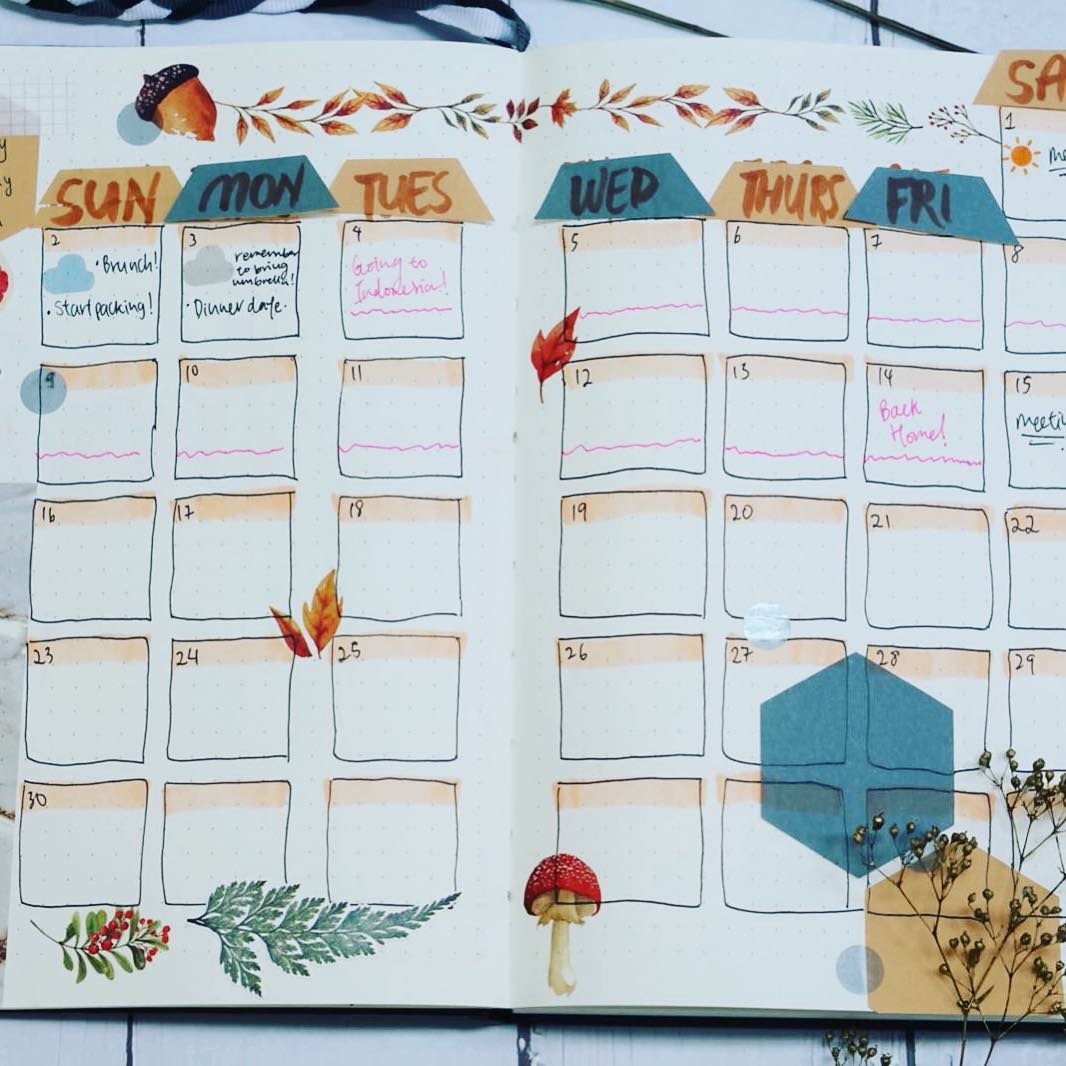 SA
y
y
1
SUN MON TUES WED THURS FRI
2
• Brunch!
• Start packing!
3
remember
to bring
umbrella!
• Dinner date •
4
Going to
Indonesia!
5
6
7
8
9
10
11
12
13
14
Back
Home!
15
meetin
16
17
18
19
20
21
22
23
24
25
26
27
28
29
30